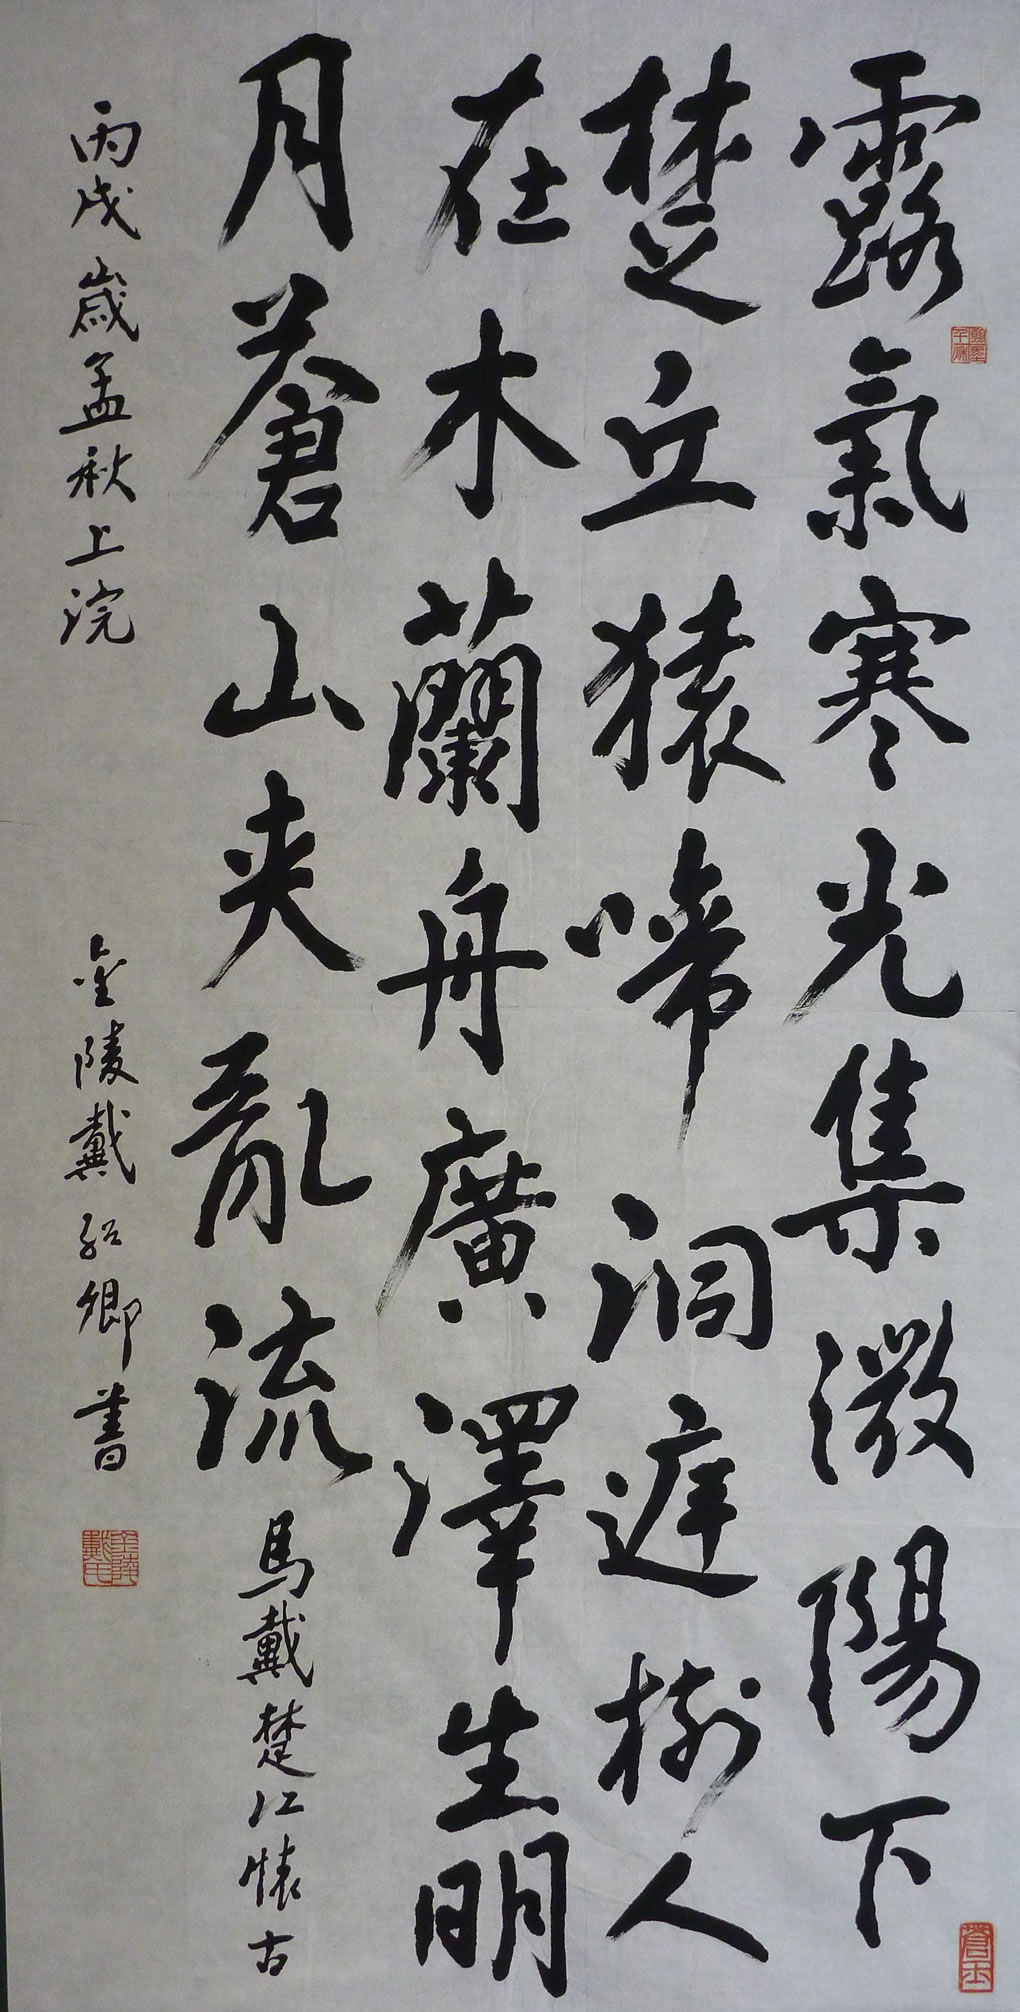 露氣寒光集微陽下
楚丘猿啼洞庭樹人
在木蘭舟廣澤生明
月蒼山夾亂流
馬戴楚江懷古
丙戌歲孟秋上浣
金陵戴紹卿書
金陵戴氏